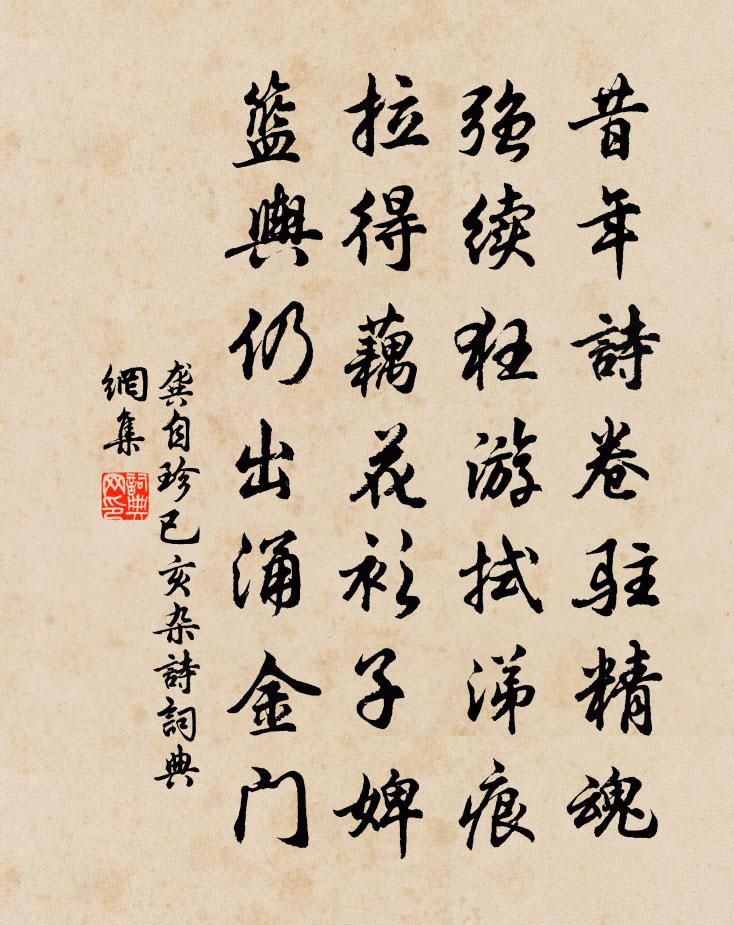 昔年詩卷驻精魂
强续狂游拭涕痕
拉得藕花衫子婢
籃輿仍出涌金门
龚自珍己亥杂詩詞典
網集
詞典
网印